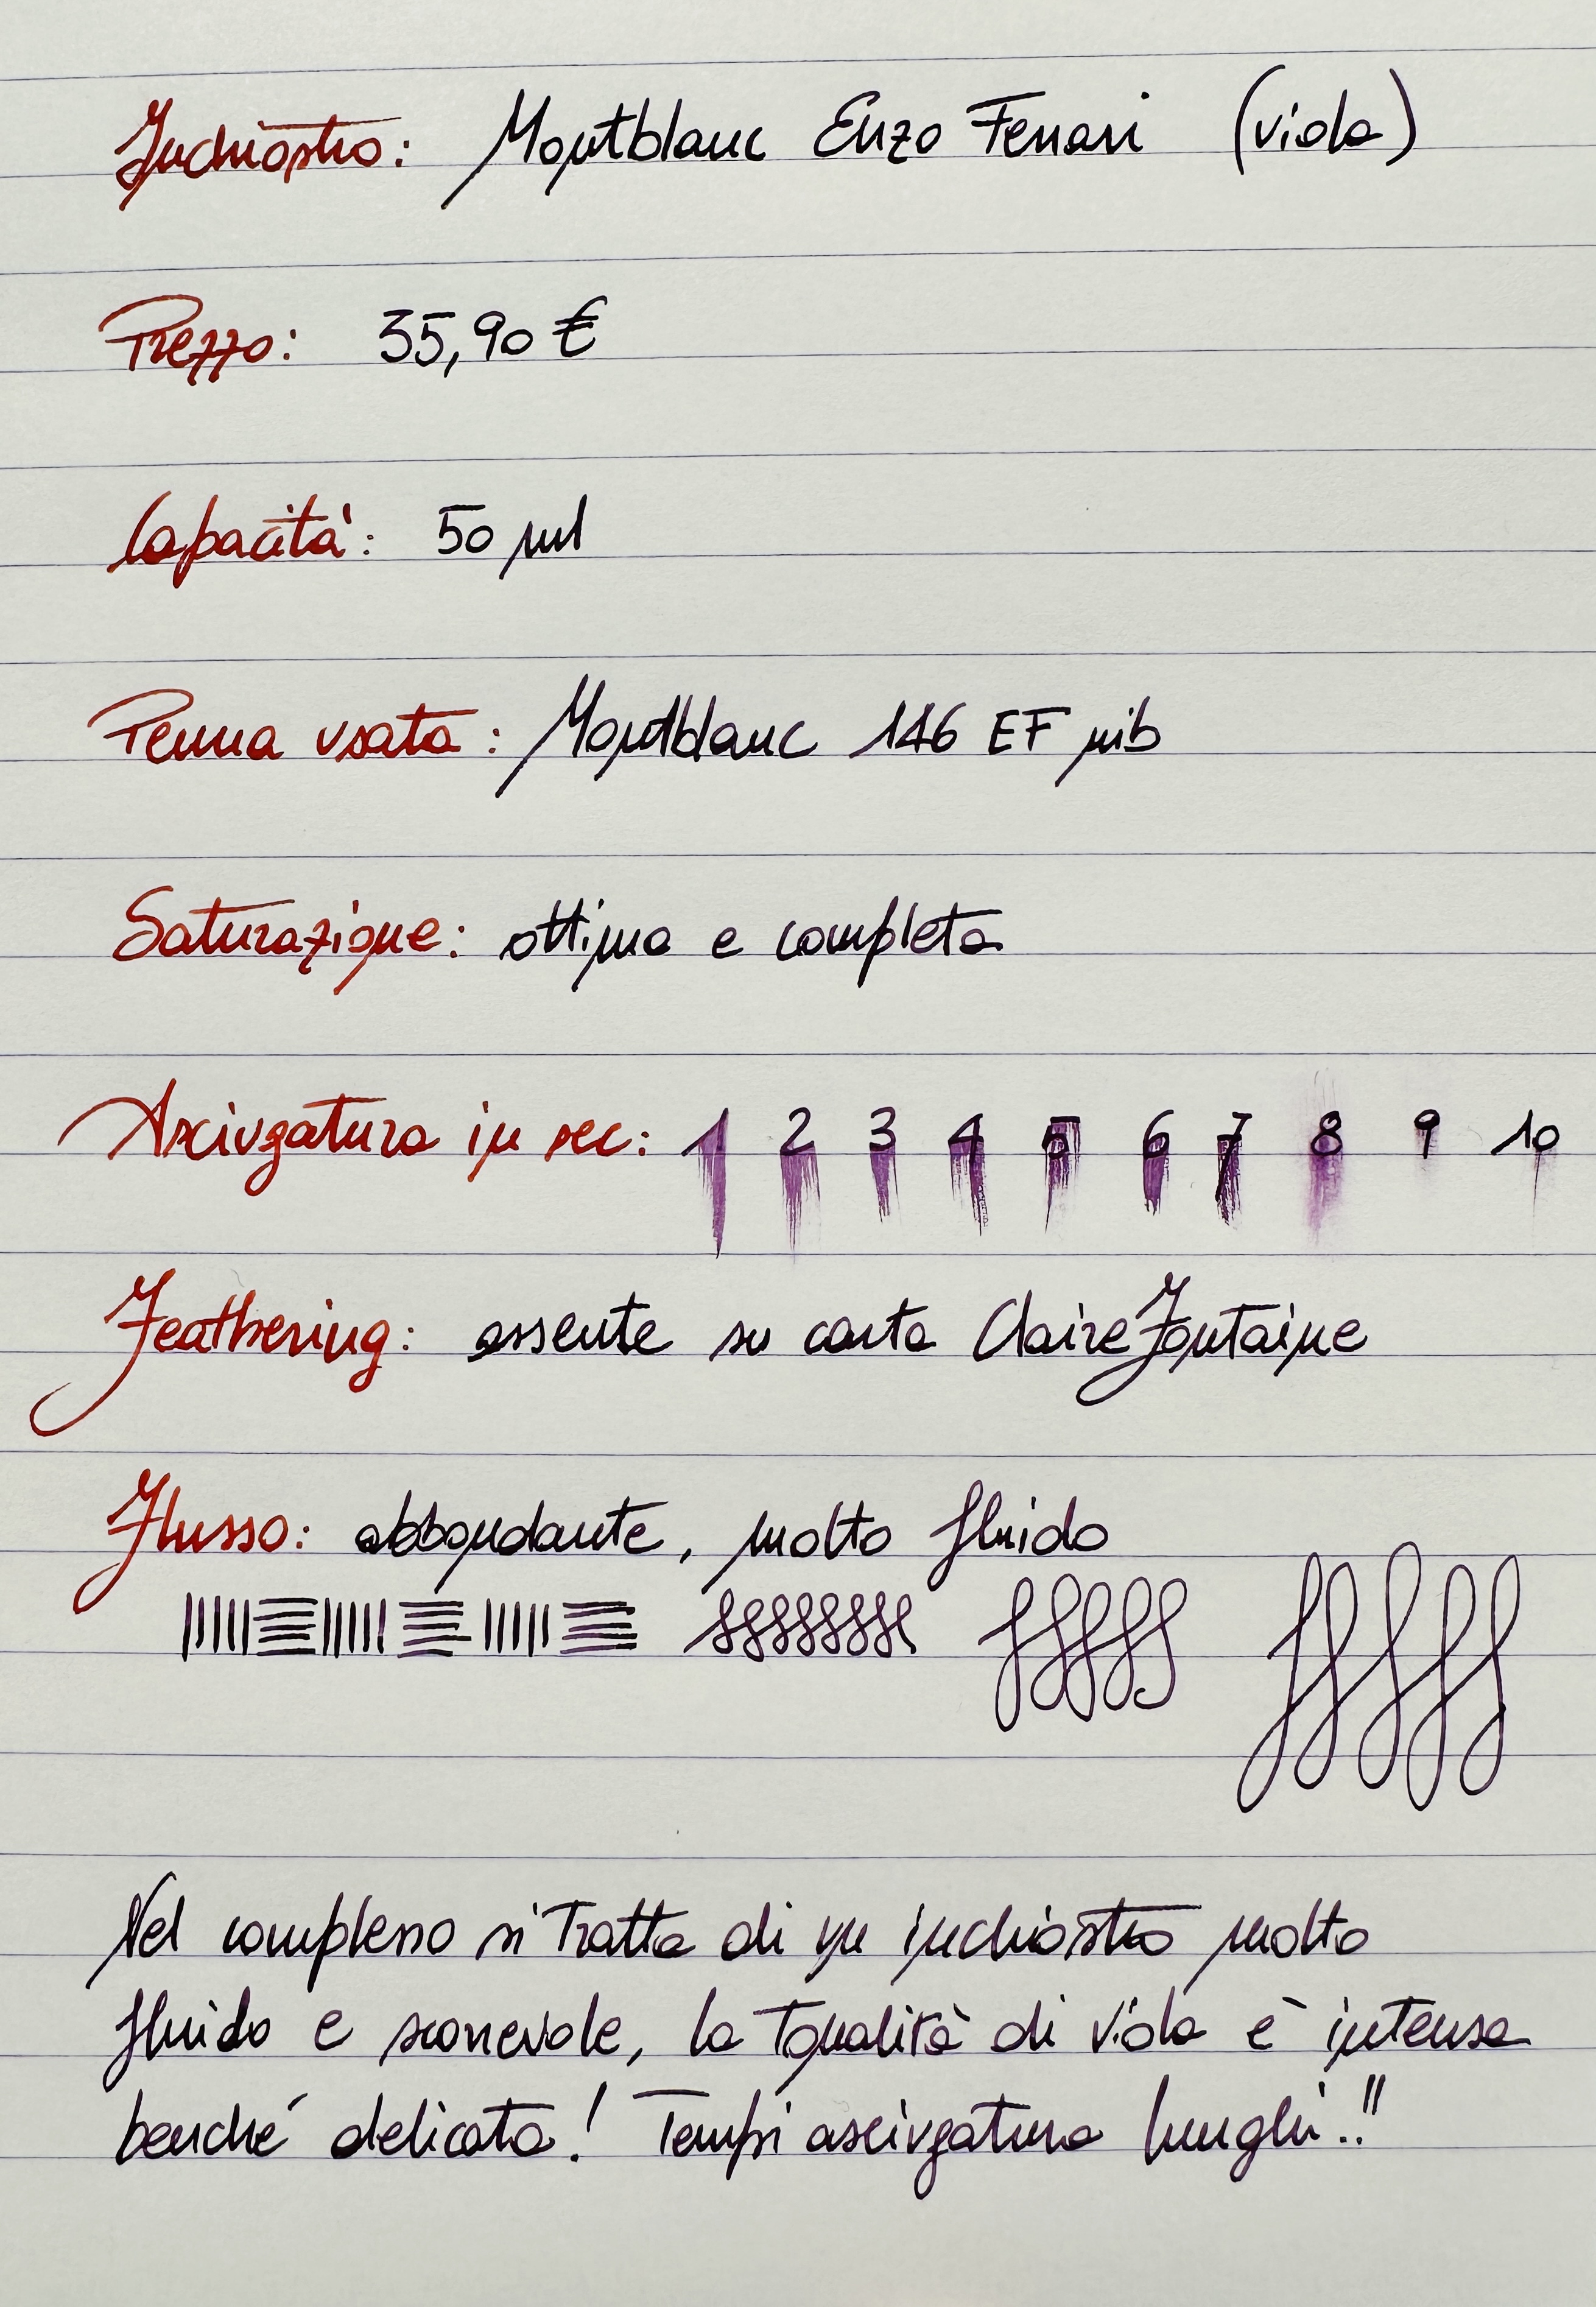 Inchiostro: Montblanc Enzo Ferrari (viola)
Prezzo: 35,90 €
Capacità: 50 ml
Penna usata: Montblanc 146 EF nib
Saturazione: ottima e completa
Asciugatura in sec: 1 2 3 4 5 6 7 8 9 10
Feathering: assente su carta ClaireFontaine
Flusso: abbondante, molto fluido
Nel complesso si tratta di un inchiostro molto
fluido e scorrevole, la tonalità di viola è intensa
benché delicata! Tempi asciugatura lunghi..!!